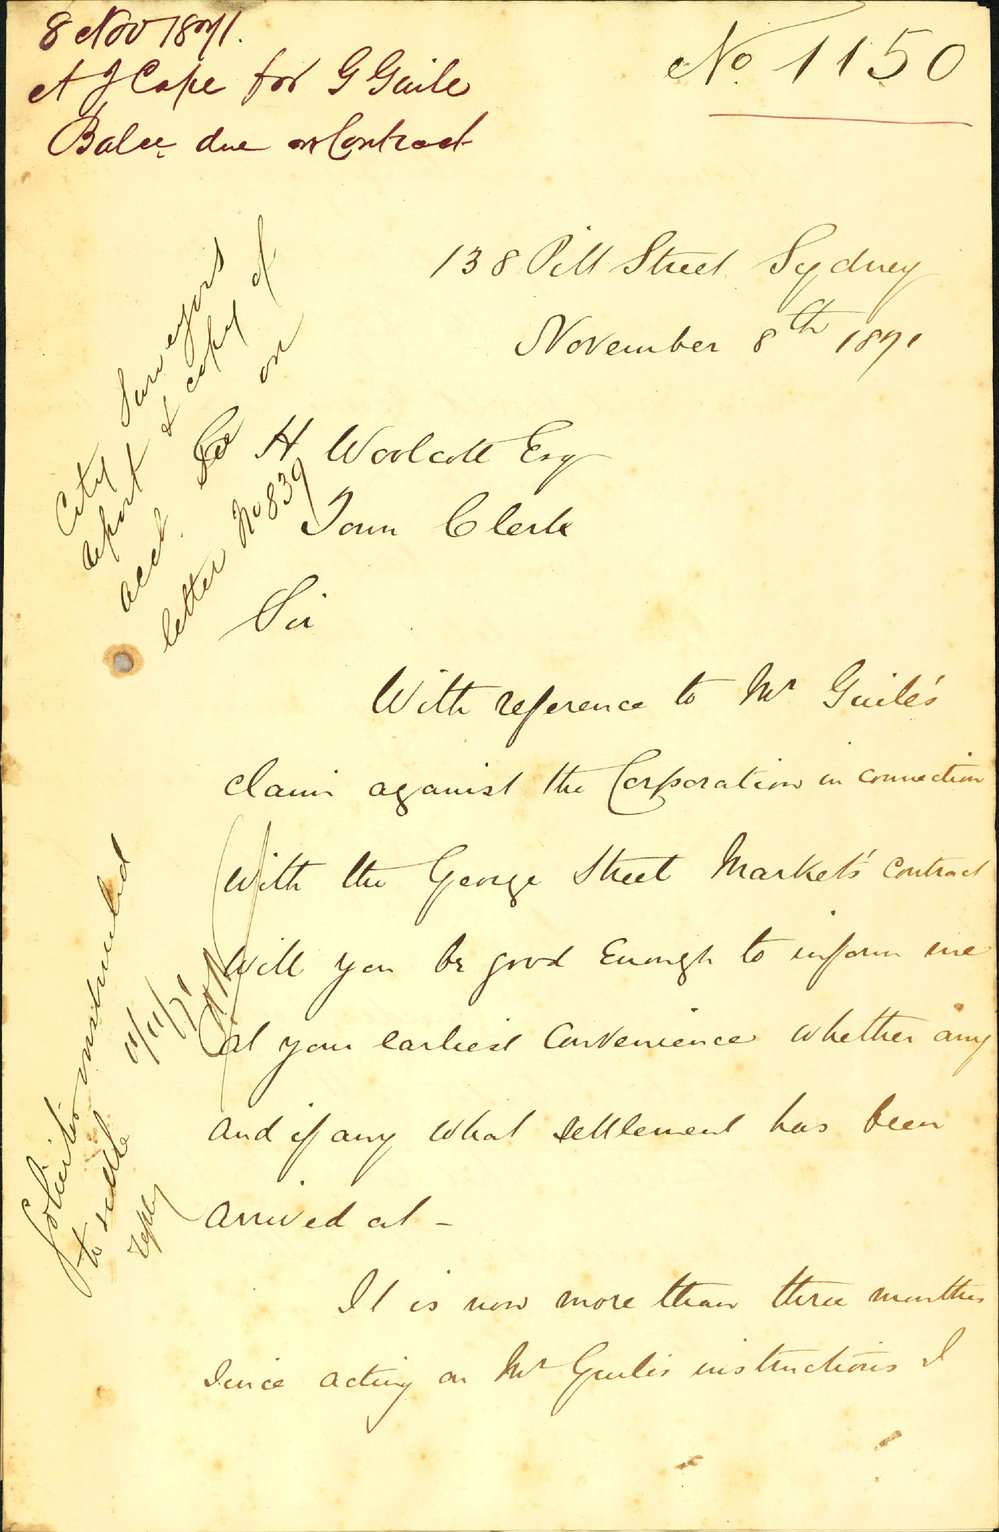 8 Nov 1871.
A J Cape for G Guile
Balce due on Contract
No 1150
138 Pitt Street Sydney
November 8th 1871
City Surveyors
report & copy of
acct. on
letter No 839
H Woolcott Esq
Town Clerk
Sir
With reference to Mr Guile's
claim against the Corporation in connection
with the George Street Market's contract
will you be good enough to inform me
at your earliest convenience whether any
and if any what settlement has been
arrived at -
Solicitor instructed
to settle
reply
It is now more than three months
since acting on Mr Guile's instructions I